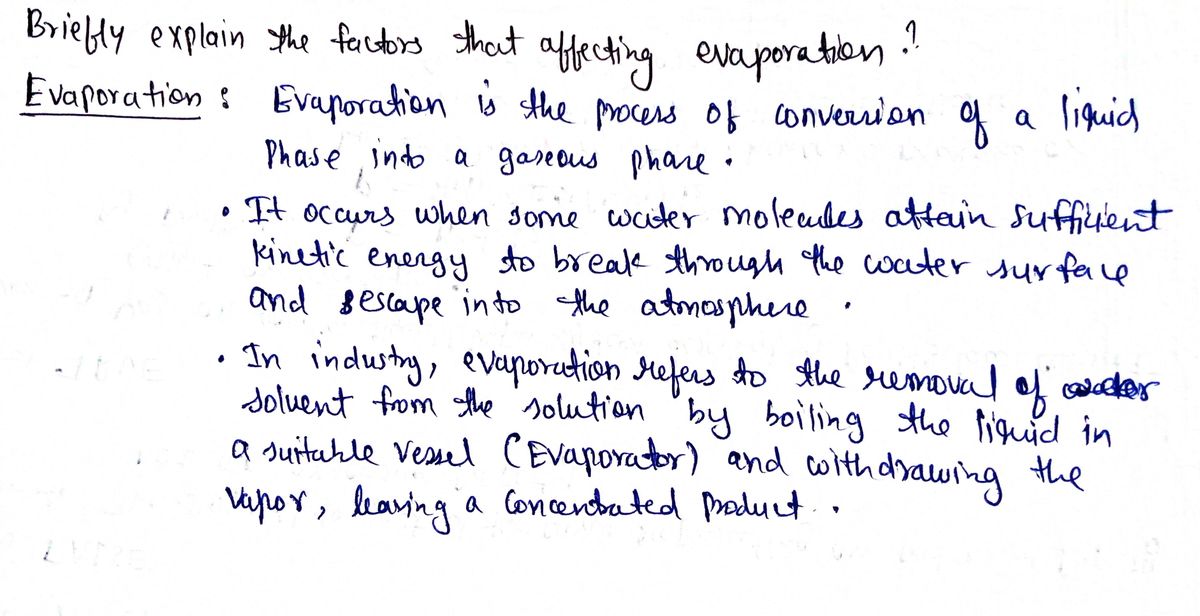 Briefly explain the factors that affecting evaporation ?
Evaporation : Evaporation is the process of conversion of a liquid
Phase into a gaseous phase .
• It occurs when some water molecules attain sufficient
kinetic energy to break through the water surface
and escape into the atmosphere .
• In industry, evaporation refers to the removal of
solvent from the solution by boiling the liquid in
a suitable vessel (Evaporator) and withdrawing the
vapor, leaving a concentrated product .